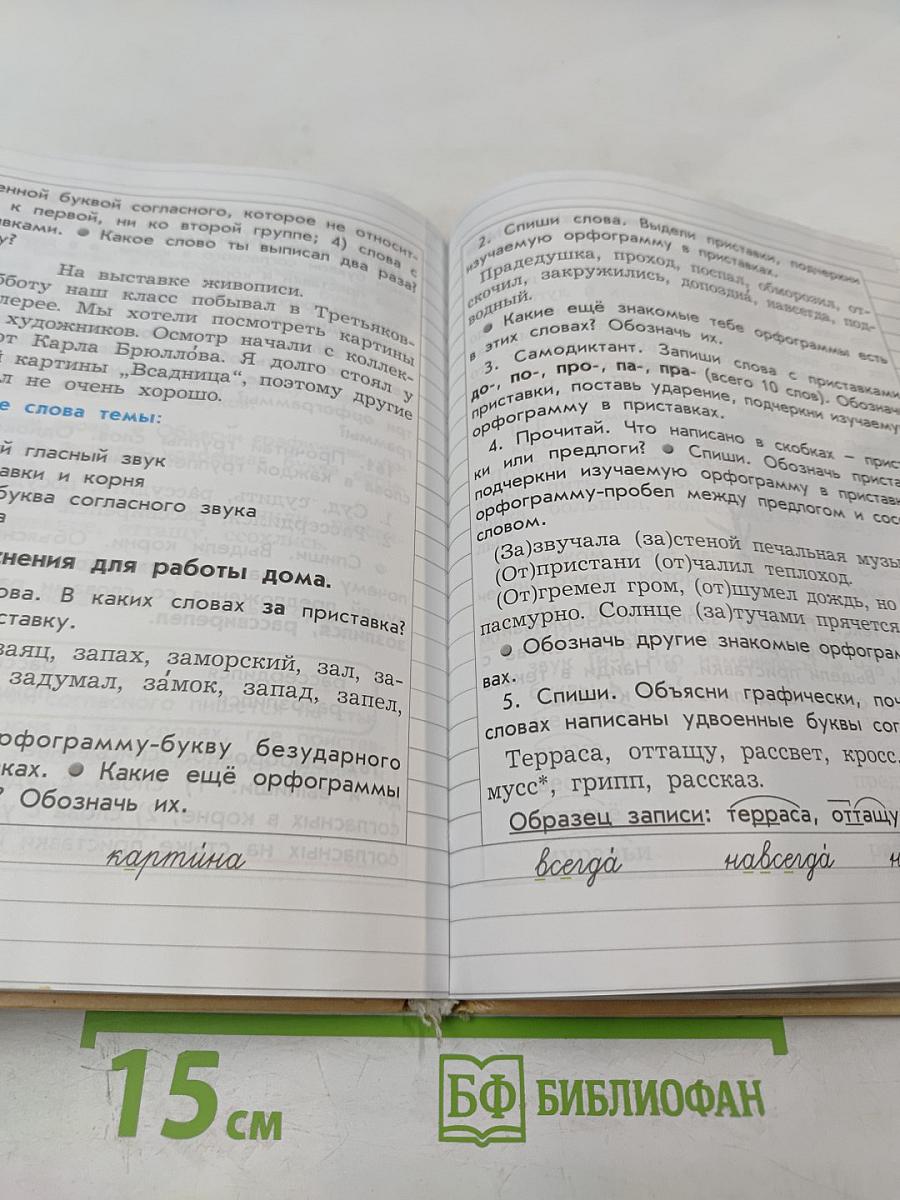 енной буквой согласного, которое не относит-
к первой, ни ко второй группе; 4) слова с
вками. ● Какое слово ты выписал два раза?
у?
На выставке живописи.
бботу наш класс побывал в Третьяков-
лерее. Мы хотели посмотреть картины
художников. Осмотр начали с коллек-
от Карла Брюлло́ва. Я долго стоял у
й картины „Всадница“, поэтому другие
л не очень хорошо.
е слова темы:
й гласный звук
авки и корня
буква согласного звука
а
нения для работы дома.
ова. В каких словах за приставка?
ставку.
заяц, запах, заморский, зал, за-
задумал, за́мок, запад, запел,
рфограмму-букву безударного
ках. ● Какие ещё орфограммы
? Обозначь их.
карти́на
2. Спиши слова. Выдели приставки, подчеркни
изучаемую орфограмму в приставках.
Прадедушка, проход, поспал, обморозил, от-
скочил, закружились, допоздна, навсегда, под-
водный.
● Какие ещё знакомые тебе орфограммы есть
в этих словах? Обозначь их.
3. Самодиктант. Запиши слова с приставками
до-, по-, про-, па-, пра- (всего 10 слов). Обознач
приставки, поставь ударение, подчеркни изучаему
орфограмму в приставках.
4. Прочитай. Что написано в скобках – прис
ки или предлоги? ● Спиши. Обозначь приста
подчеркни изучаемую орфограмму в пристав
орфограмму-пробел между предлогом и сос
словом.
(За)звучала (за)стеной печальная музы
(От)пристани (от)чалил теплоход.
(От)гремел гром, (от)шумел дождь, но
пасмурно. Солнце (за)тучами прячется
● Обозначь другие знакомые орфограм
вах.
5. Спиши. Объясни графически, поч
словах написаны удвоенные буквы сог
Терраса, оттащу, рассвет, кросс,
мусс*, грипп, рассказ.
Образец записи: терраса, оттащу
всегда́ навсегда́ н
15 см
БФ БИБЛИОФАН